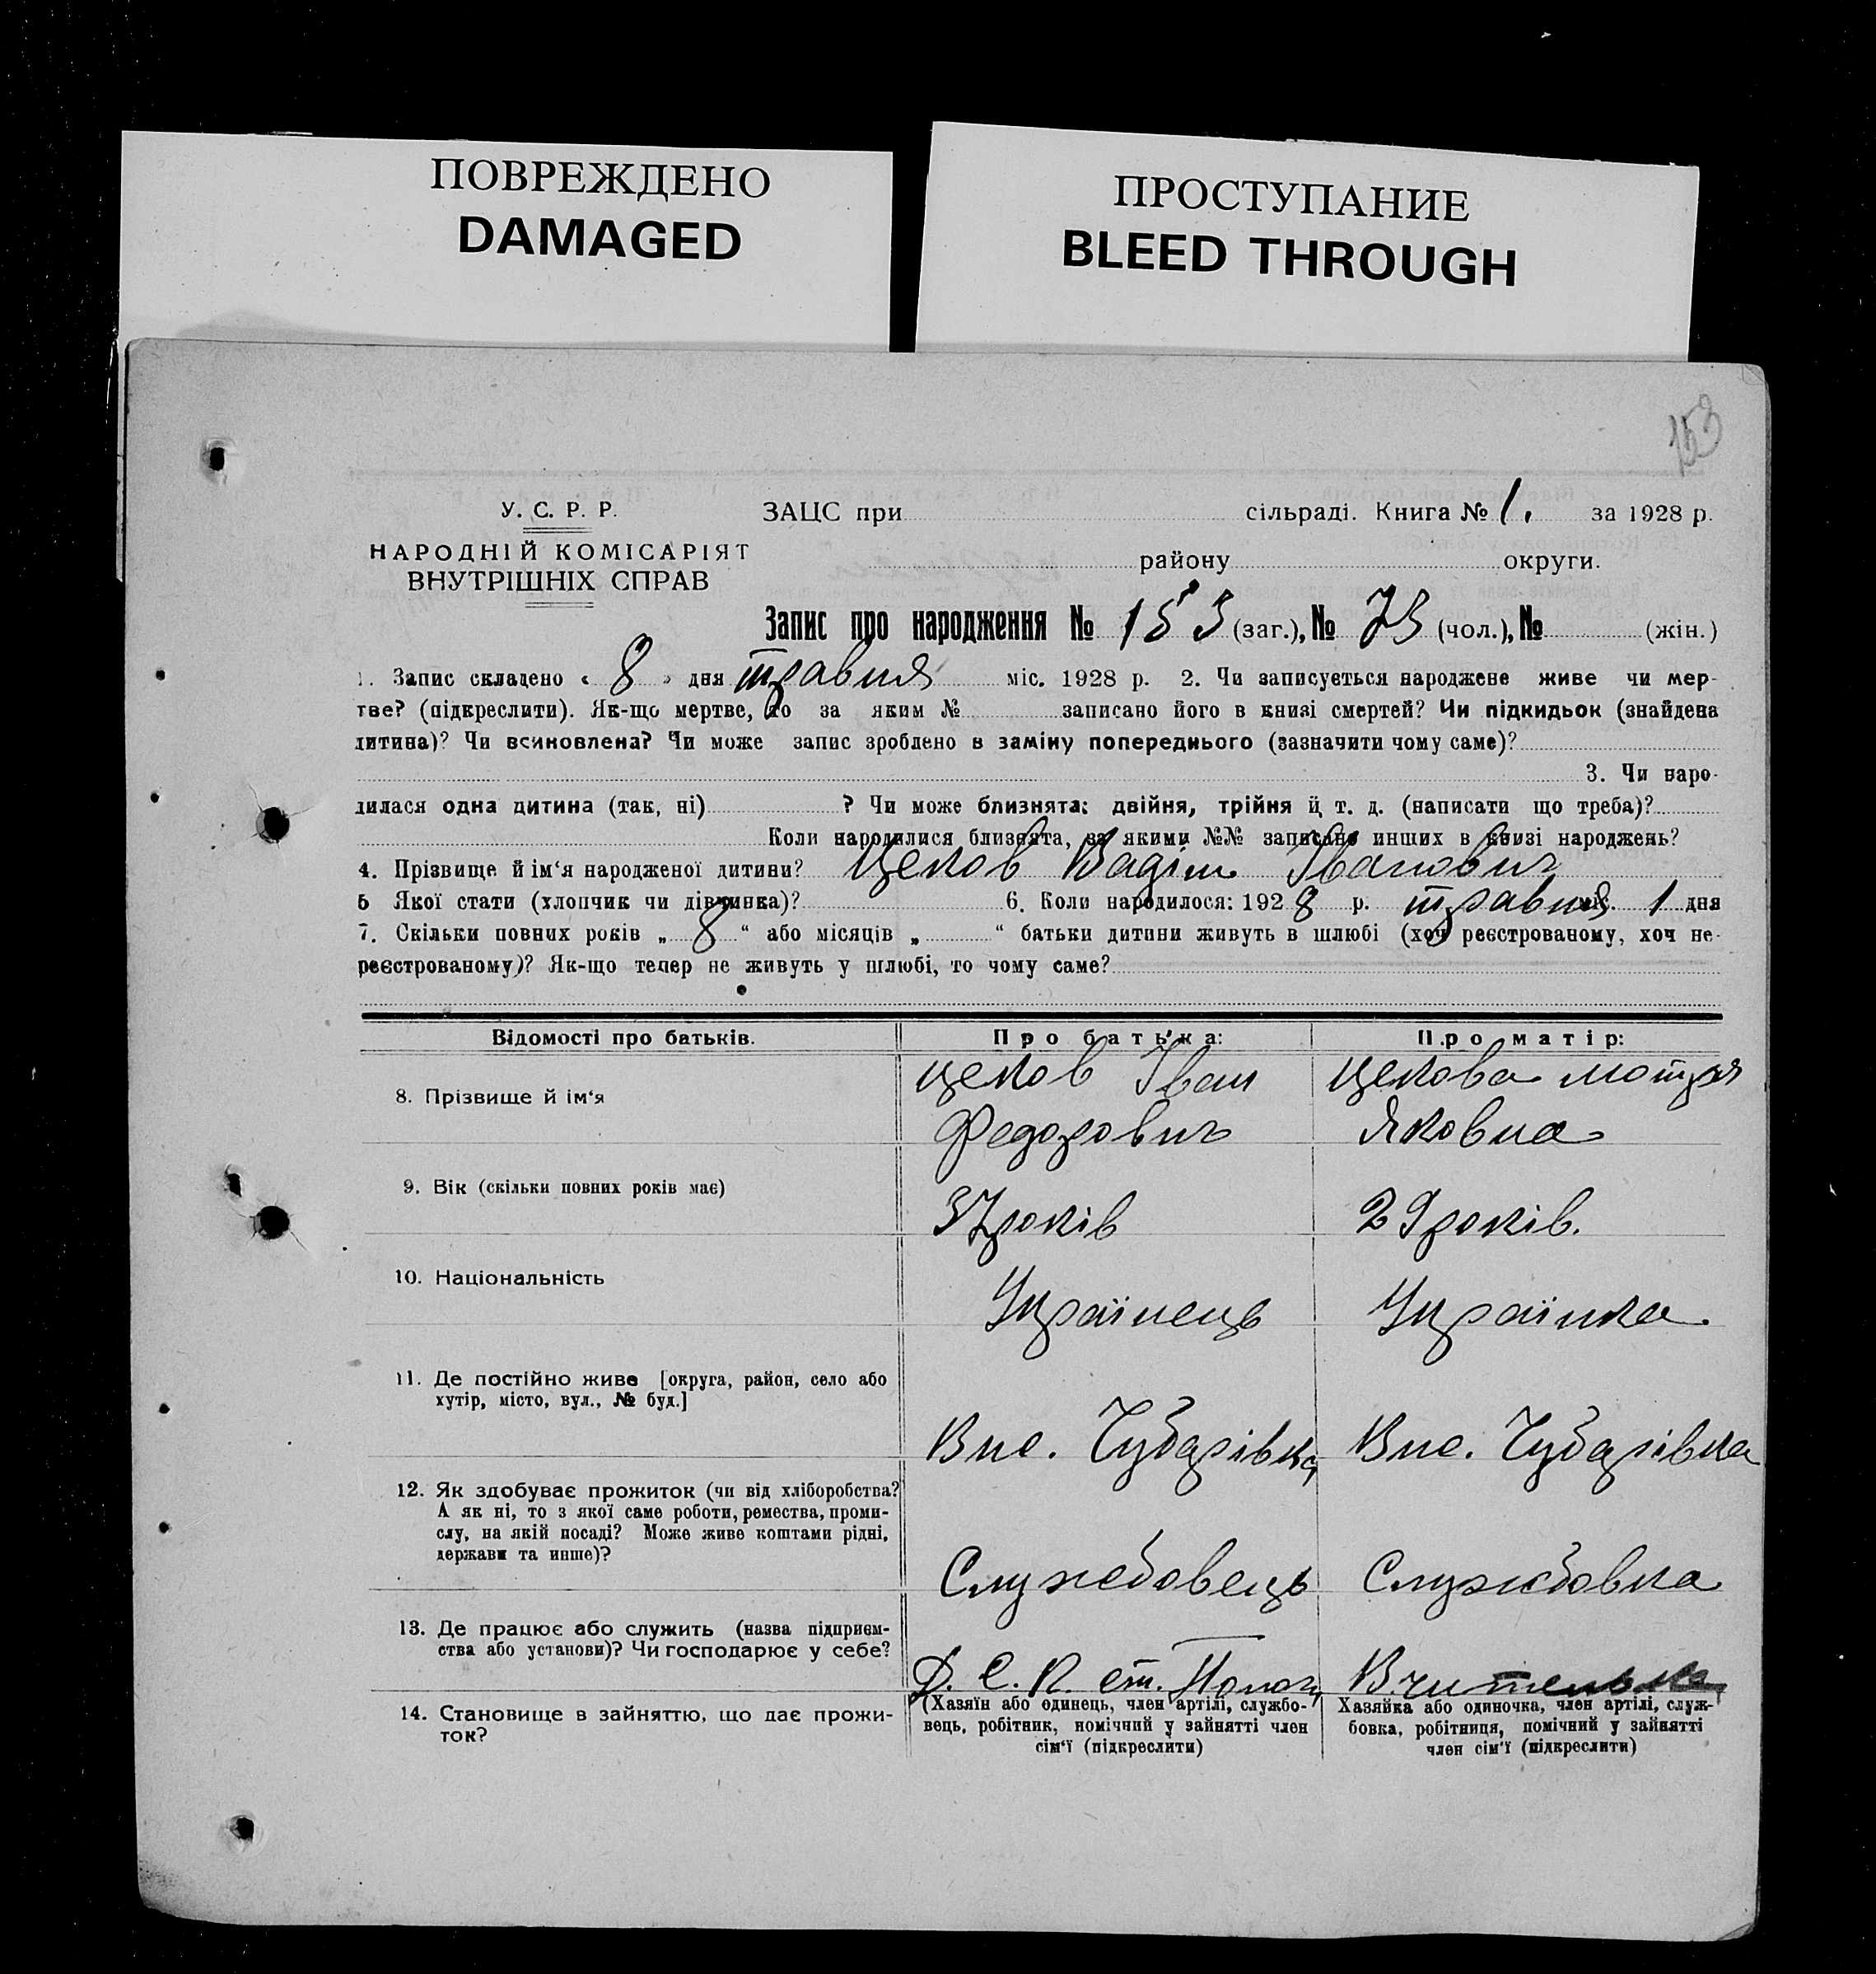 ПОВРЕЖДЕНО
DAMAGED
ПРОСТУПАНИЕ
BLEED THROUGH
153
У. С. Р. Р.
НАРОДНІЙ КОМІСАРІЯТ
ВНУТРІШНІХ СПРАВ
ЗАЦС при сільраді. Книга № 1. за 1928 р.
району округи.
Запис про народження № 153 (заг.), № 73 (чол.), № (жін.)
1. Запис складено « 8 » дня травня міс. 1928 р. 2. Чи записується народжене живе чи мер-
тве? (підкреслити). Як-що мертве, то за яким № записано його в книзі смертей? Чи підкидьок (знайдена
дитина)? Чи всиновлена? Чи може запис зроблено в заміну попереднього (зазначити чому саме)?
3. Чи наро-
дилася одна дитина (так, ні) ? Чи може близнята: двійня, трійня й т. д. (написати що треба)?
Коли народилися близнята, за якими №№ записано инших в книзі народжень?
4. Прізвище й ім'я народженої дитини? Цеков Вадім Іванович
5 Якої стати (хлопчик чи дівчинка)? 6. Коли народилося: 1928 р. травня міс. 1 дня
7. Скільки повних років „ 8 “ або місяців „ “ батьки дитини живуть в шлюбі (хоч реєстрованому, хоч не-
реєстрованому)? Як-що тепер не живуть у шлюбі, то чому саме?
Відомості про батьків. Про батька: Про матір:
8. Прізвище й ім'я
Цеков Іван
Федорович
Цекова Мотря
Яковна
9. Вік (скільки повних років має)
37 років
29 років.
10. Національність
Українець
Українка.
11. Де постійно живе [округа, район, село або
хутір, місто, вул., № буд.]
Чубарівка
Чубарівка
12. Як здобуває прожиток (чи від хліборобства?
А як ні, то з якої саме роботи, ремества, проми-
слу, на якій посаді? Може живе коштами рідні,
держави та инше)?
Службовець
Службовка
13. Де працює або служить (назва підприєм-
ства або установи)? Чи господарює у себе?
ст. Пологи
Вчителька
14. Становище в зайняттю, що дає прожи-
ток?
(Хазяїн або одинець, член артілі, службо-
вець, робітник, помічний у зайнятті член
сім'ї (підкреслити)
Хазяйка або одиночка, член артілі, служ-
бовка, робітниця, помічний у зайнятті
член сім'ї (підкреслити)